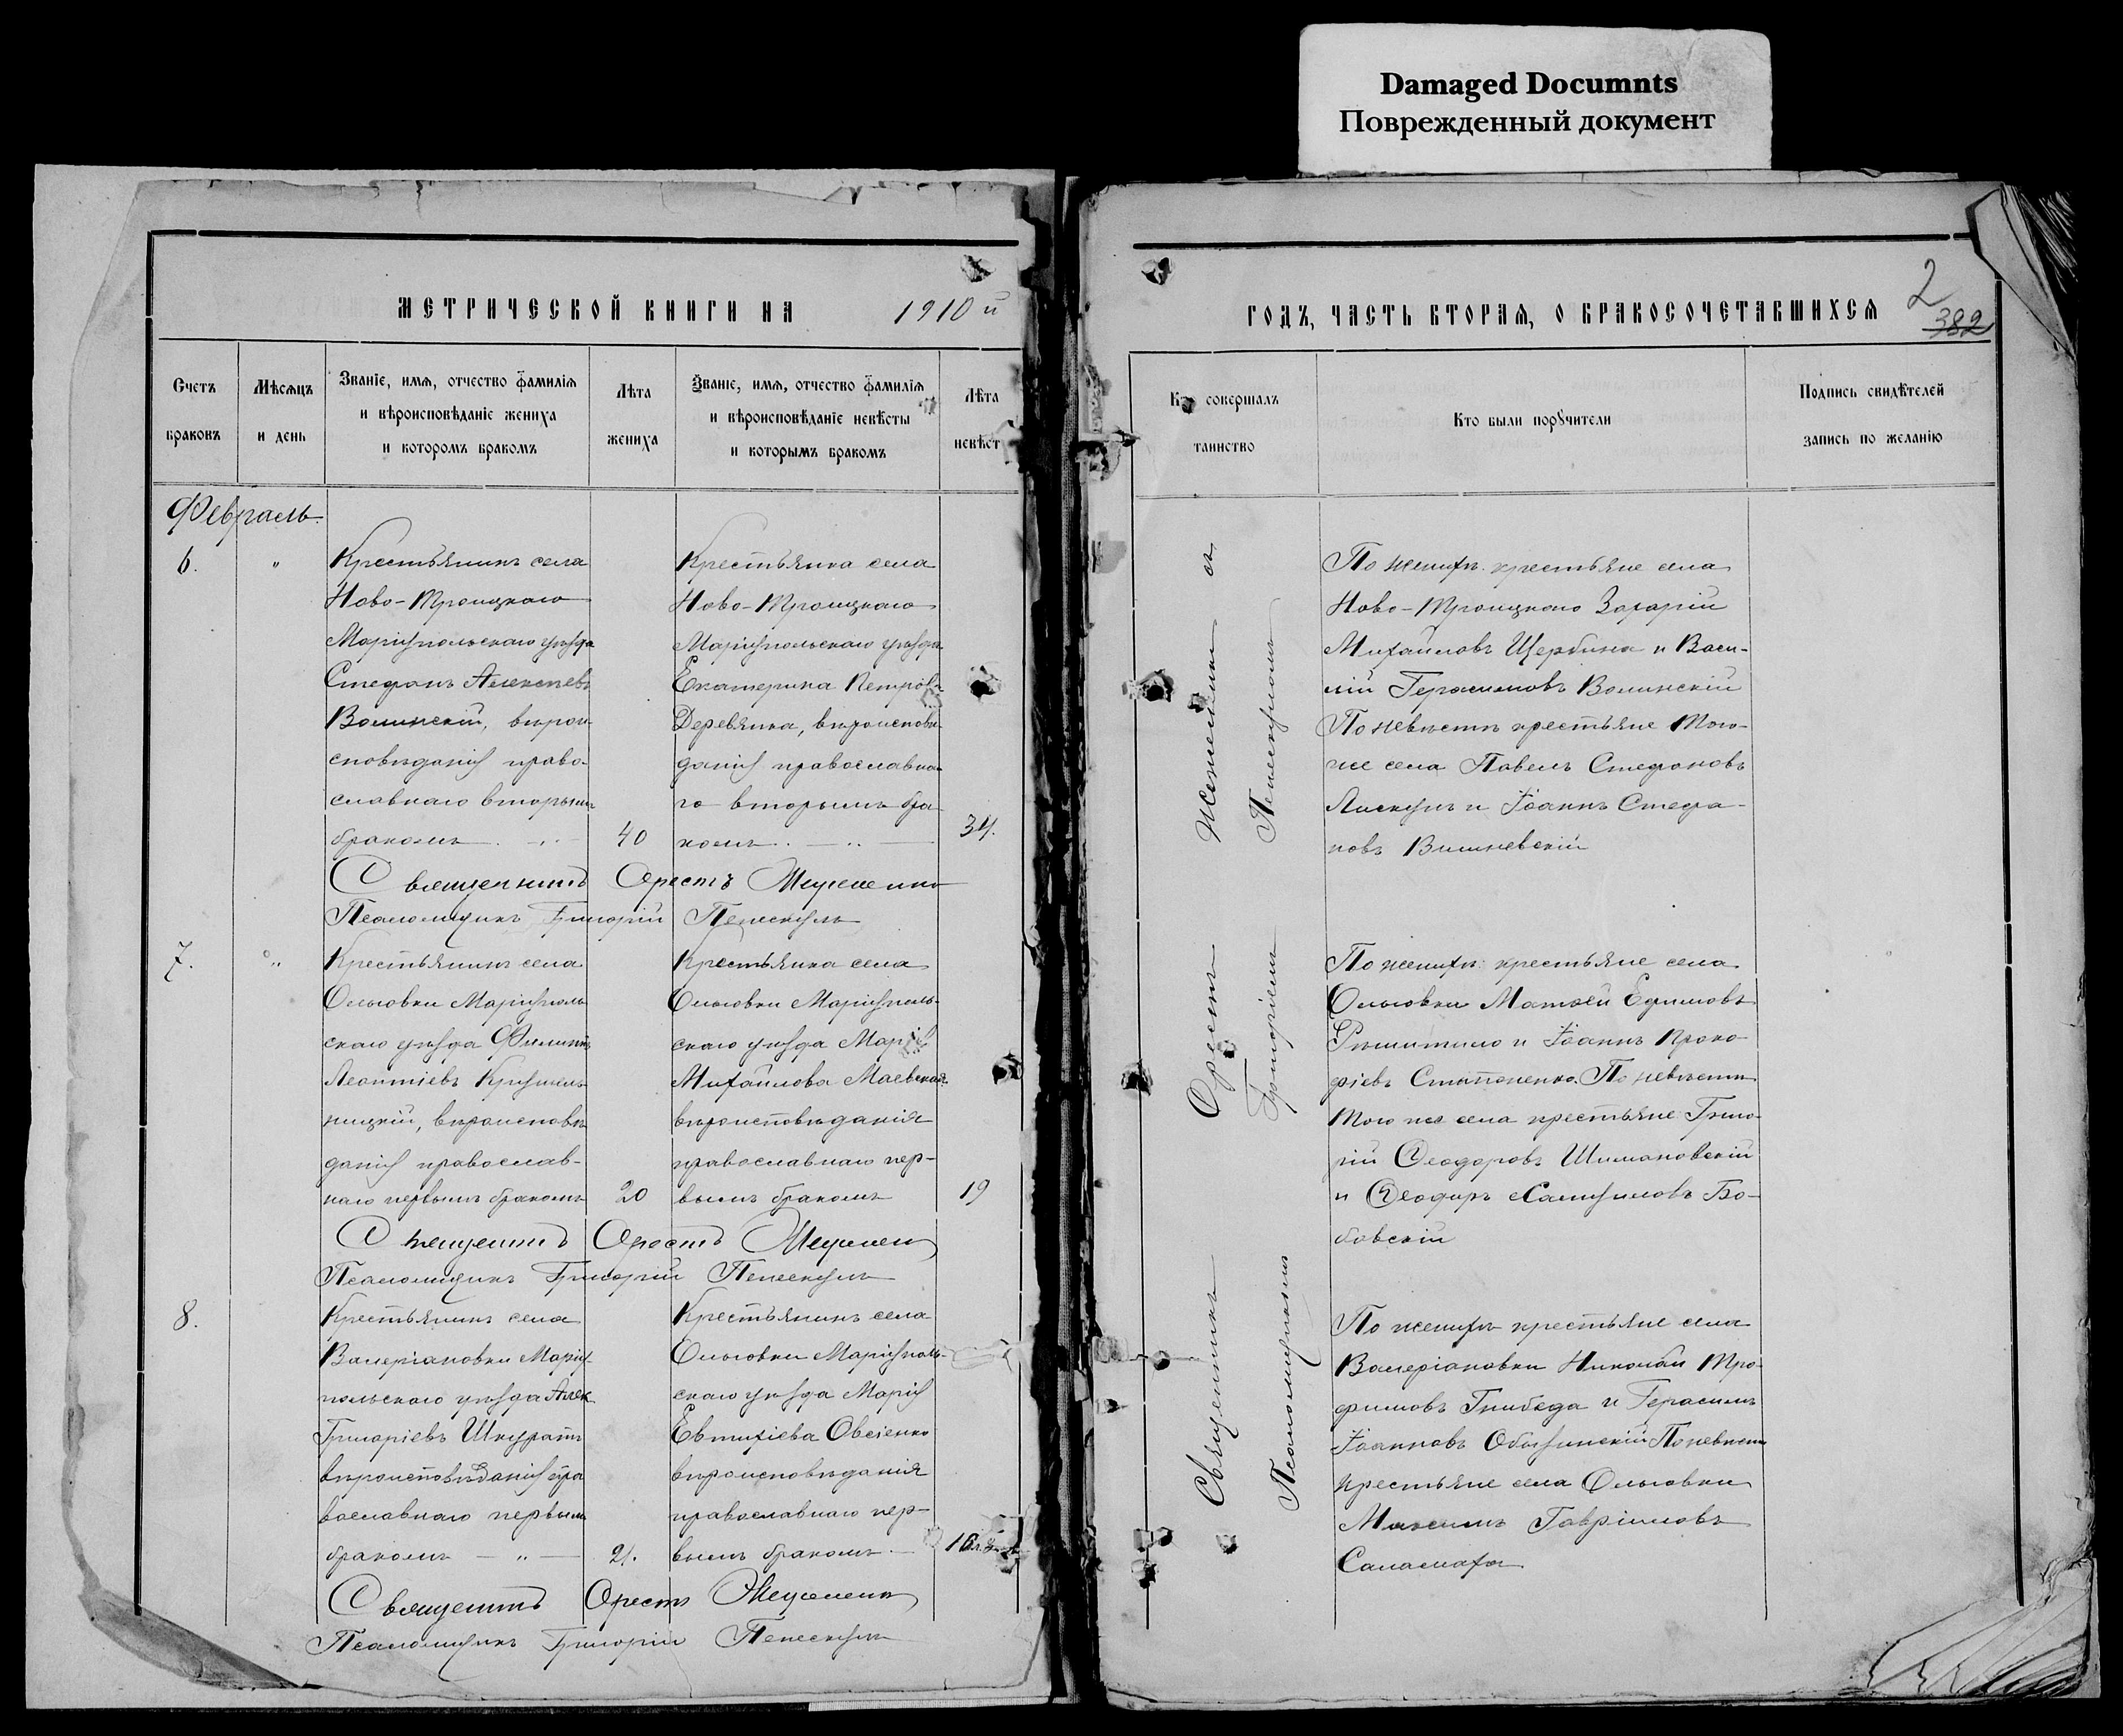 Damaged Documnts
Поврежденный документ
МЕТРИЧЕСКОЙ КНИГИ НА 1910 й
Счетъ браковъ
Мѣсяцъ и день
Званіе, имя, отчество фамилія
и вѣроисповѣданіе жениха
и которомъ бракомъ
Лѣта жениха
Званіе, имя, отчество фамилія
и вѣроисповѣданіе невѣсты
и которымъ бракомъ
Лѣта невѣст
Февраль.
6. "
Крестьянинъ села
Ново-Троицкаго
Маріупольскаго уѣзда
Стефанъ Алексѣевъ
Волинскій, вѣрои
сповѣданія право-
славнаго вторымъ
бракомъ
40
Крестьянка села
Ново-Троицкаго
Маріупольскаго уѣзда
Екатерина Петров
Деревянка, вѣроисповѣ
данія православна
го вторымъ бра
комъ
34.
Священникъ Орестъ
Псаломщикъ Григорій Пенескулъ
7. "
Крестьянинъ села
Ольговки Маріуполь
скаго уѣзда Филиппъ
Леонтіевъ
ницкій, вѣроисповѣ
данія православ-
наго первымъ бракомъ
20
Крестьянка села
Ольговки Маріуполь-
скаго уѣзда Марія
Михайлова Маевская
вѣроисповѣданія
православнаго пер-
вымъ бракомъ
19
Священникъ Орестъ
Псаломщикъ Григорій Пенескулъ
8.
Крестьянинъ села
Валеріановки Маріу-
польскаго уѣзда Алек
Григоріевъ Шкуратъ
вѣроисповѣданія пра
вославнаго первымъ
бракомъ
21.
Крестьянинъ села
Ольговки Маріуполь-
скаго уѣзда Марія
Евтихіева Овсіенко
вѣроисповѣданія
православнаго пер-
вымъ бракомъ
16
Священникъ Орестъ
Псаломщикъ Григорій Пенескулъ
ГОДЪ, ЧАСТЬ ВТОРАЯ, О БРАКОСОЧЕТАВШИХСЯ
2
382
Кто совершалъ
таинство
Кто были поручители
Подпись свидѣтелей
запись по желанію
Священникъ Орестъ съ
Псаломщикомъ Григоріемъ Пенескуломъ
По женихѣ крестьяне села
Ново-Троицкаго Захарій
Михайловъ Щербина и Васи-
лій Герасимовъ Волинскій
По невѣстѣ крестьяне того-
же села Павелъ Стефановъ
Лискунъ и Іоаннъ Стефа-
новъ Вишневскій
По женихѣ крестьяне села
Ольговки Матѳей Ефимовъ
Рѣшитило и Іоаннъ Проко-
фіевъ По невѣстѣ
того же села крестьяне Григо-
рій Ѳеодоровъ Шимановскій
и Ѳеодоръ Бо-
бовскій
По женихѣ крестьяне села
Валеріановки Николай Тро-
фимовъ Гнибеда и Герасимъ
Іоанновъ По невѣстѣ
крестьяне села Ольговки
Максимъ Гавріиловъ
Саламаха